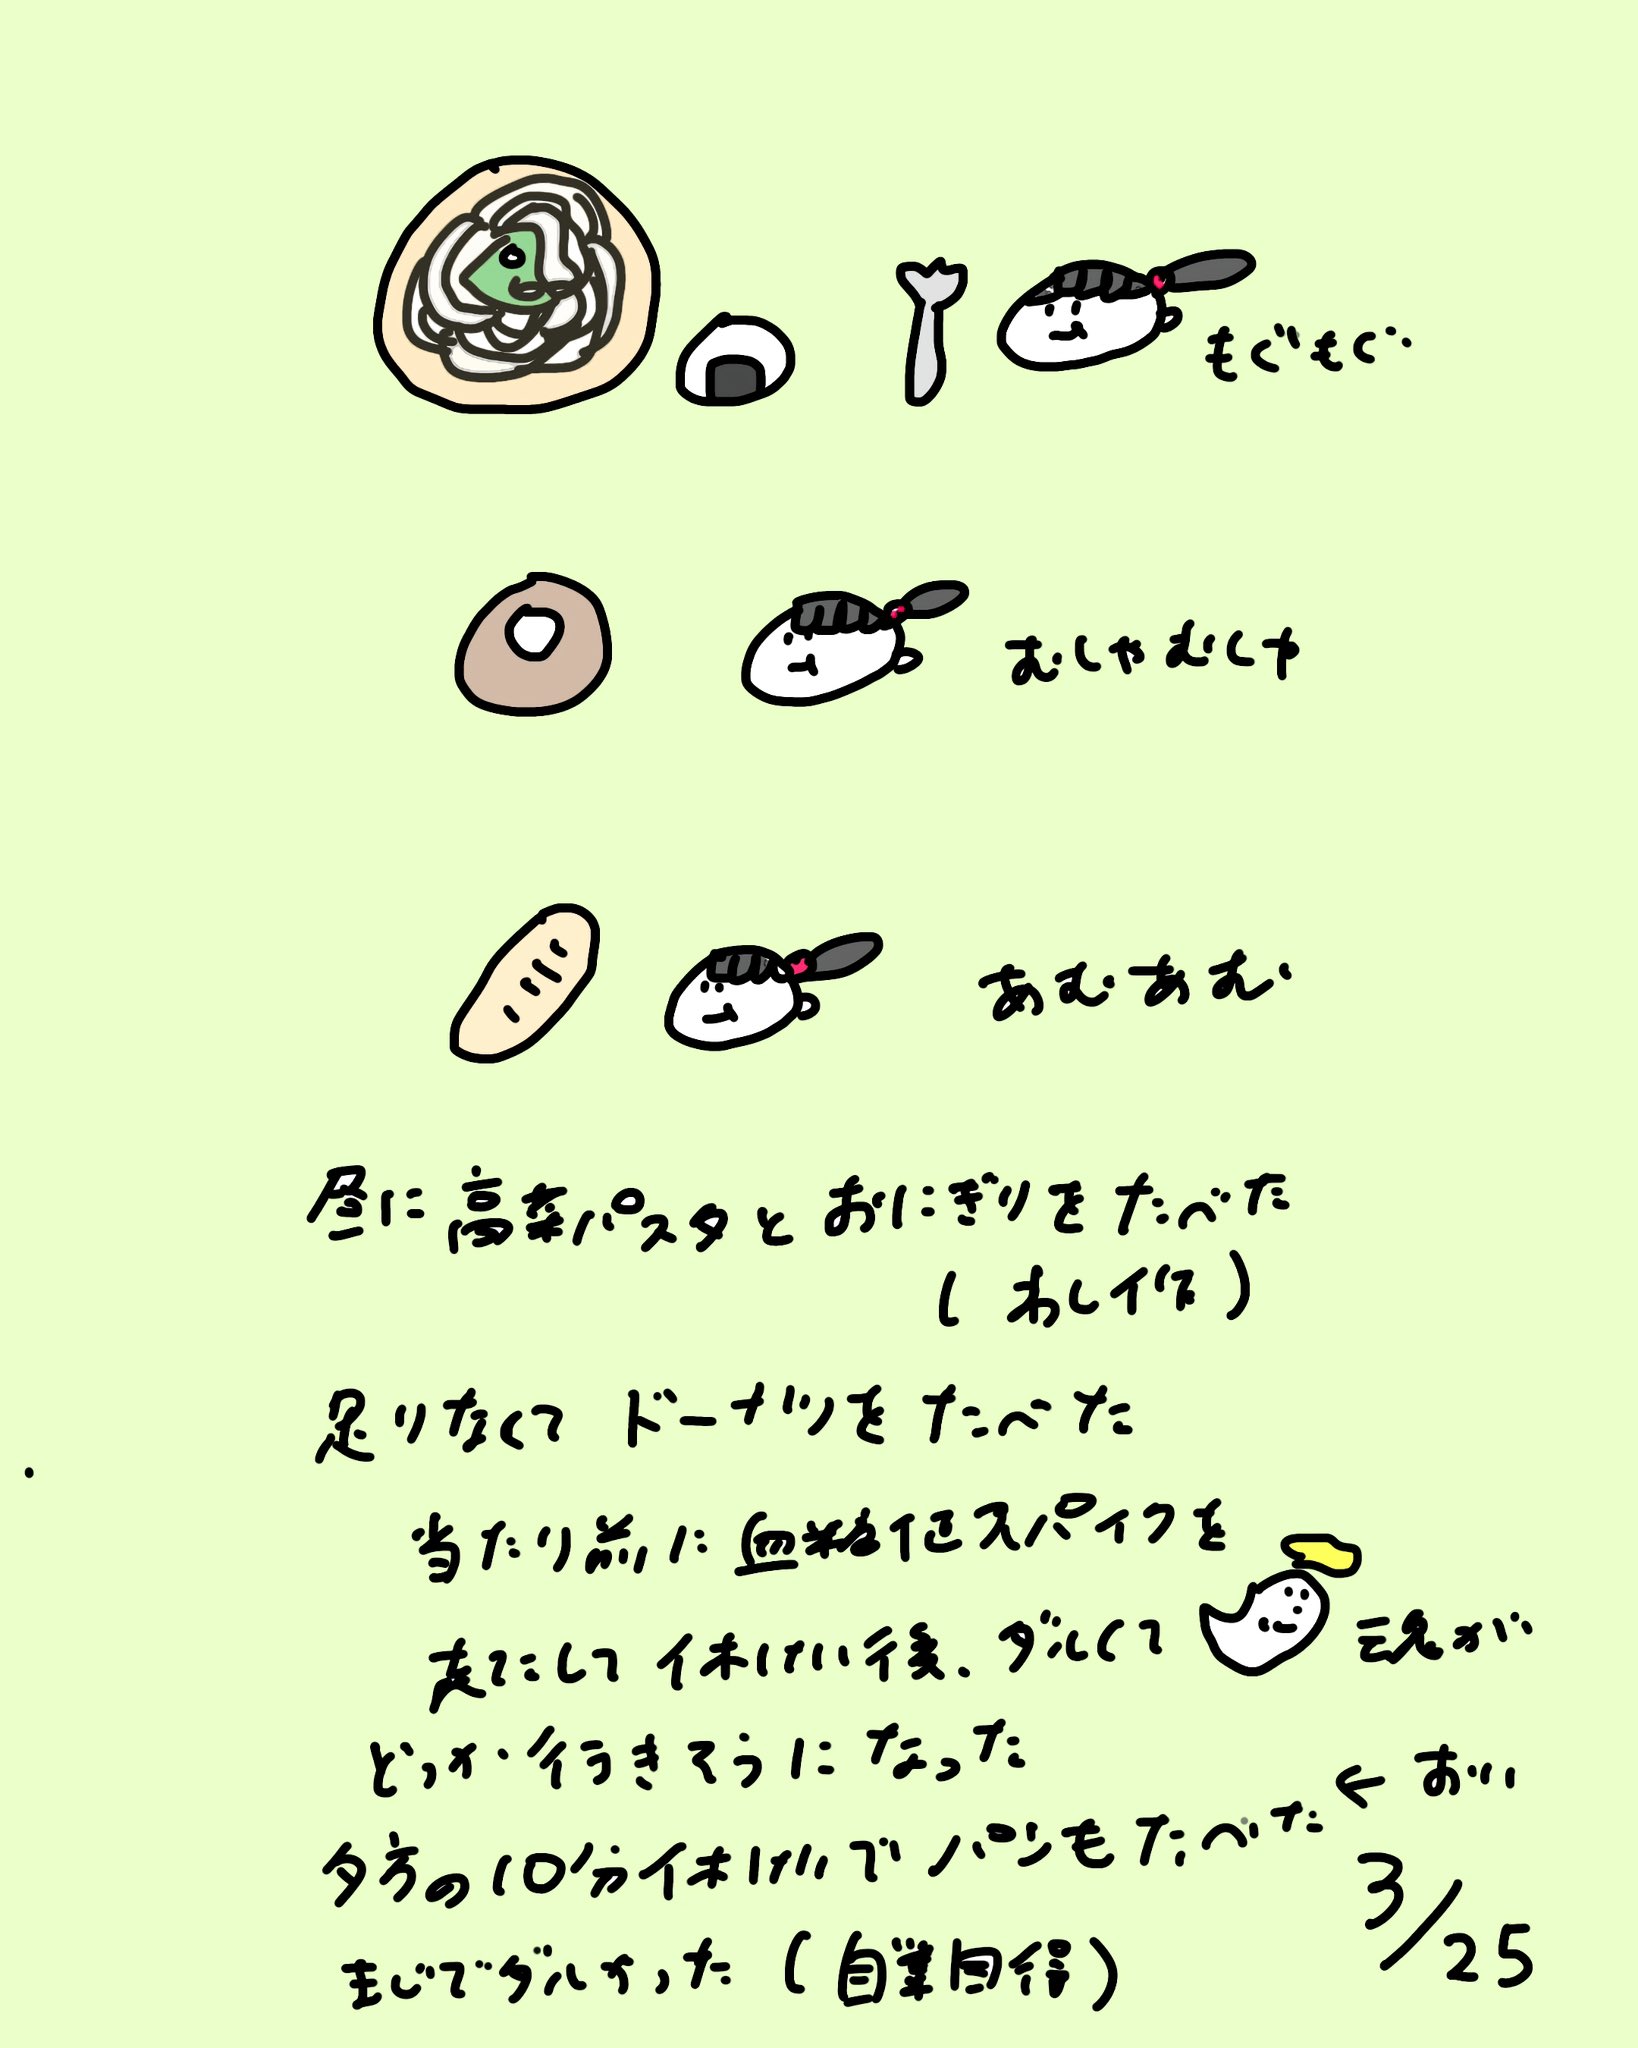 もぐもぐ
むしゃむしゃ
あむあむ
昼に高菜パスタとおにぎりをたべた
(わし作)
足りなくてドーナツをたべた
当たり前に血糖値スパイクを
起こして休けい後、ダルくて魂が
どっか行きそうになった
夕方の10分休けいでパンもたべた ← おい
まじでダルかった(自業自得)
3/25